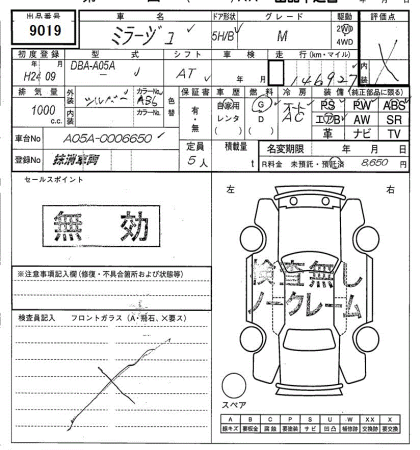 出品番号 車名 ドア形状 グレード 駆動 評価点
9019 ミラージュ 5H/B M 2WD 4WD
初度登録 型式 シフト 車検 走行(km・マイル) 内装
年 月 DBA-A05A 年 月
H24 09 AT 146927
排気量 外装 カラーNo. 色替 保証書 車歴 燃料 冷房 装備(純正部品に限る)
1000 c.c. シルバー A36 カラーNo. 有・無 自家用 レンタ G D オート AC PS PW ABS
エアB AW SR
革 ナビ TV
車台No A05A-0006650 定員 積載量 名変期限 年 月 日
登録No 抹消車両 5人 t R料金 未預託・預託済 8,650
セールスポイント
無効
左 右
検査無し
ノークレーム
※注意事項記入欄(修復・不具合箇所および状態等)
検査員記入 フロントガラス(A・飛石、X要ス)
スペア
A B C P S U W XX X
線キズ 要板金 腐蝕 要塗装 サビ 凹凸 補修跡 交換跡 要交換